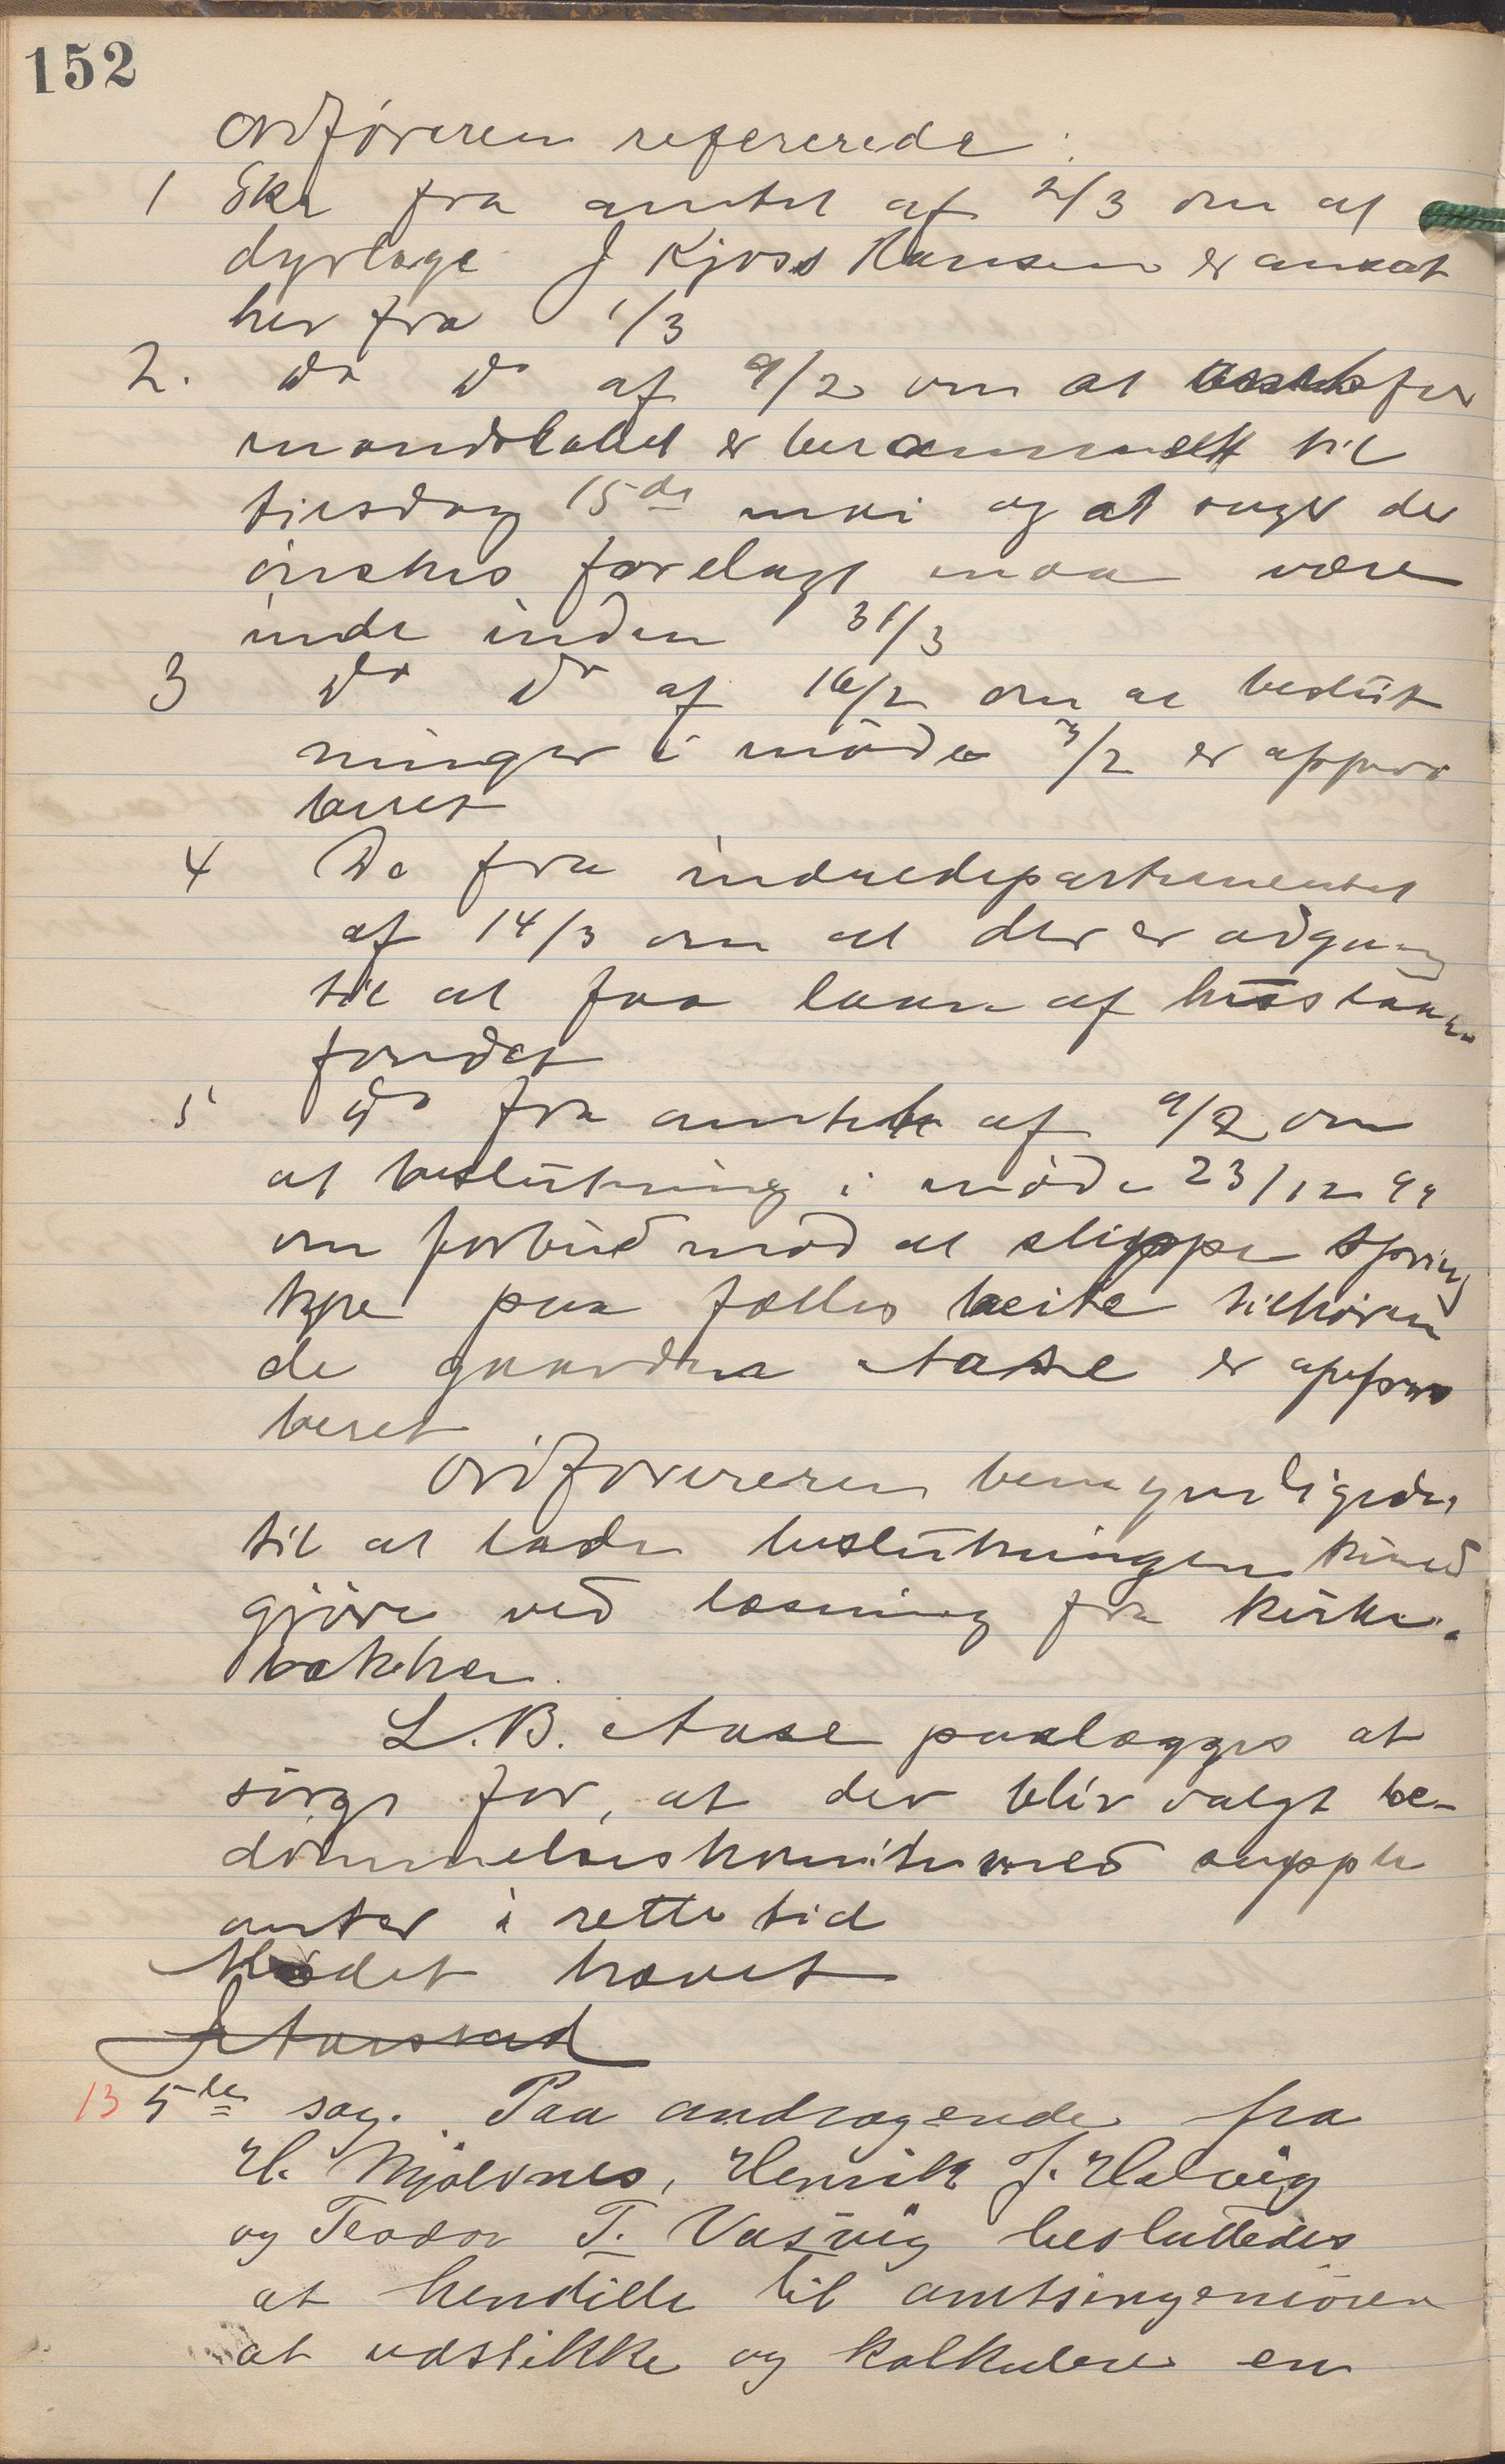 152
Ordføreren refererede:
1 Skr fra amtet af 2/3 om at
dyrlæge J Kjos Hansen er ansat
her fra 1/3
2. Do Do af 9/2 om at for
mandskabet er berammet til
tirsdag 15de mai og at sager der
ønskes forelagt maa være
inde inden 31/3
3 Do Do af 16/2 om at beslut
ninger i møde 3/2 er appro
beret
4 Do fra indredepartementet
af 14/3 om at der er adgang
til at faa laan af huslaane
fondet
5 Do fra amtet af 9/2 om
at beslutning i møde 23/12 99
om forbud mod at slippe spring
tyre paa fælles beite tilhøren
de gaarden Aase er appro
beret
Ordføreren bemyndigedes
til at lade beslutningen kund
gjøre ved læsning fra kirke-
bakken.
L. B. Aase paalægges at
sørge for, at der blir valgt be-
dømmelseskomite med supple
anter i rette tid
Mødet hævet
Aarstad
13 5te sag. Paa andragende fra
H. Mjølsnes, Henrik J. Helvig
og Teodor T. Vasvig besluttedes
at henstille til amtsingeniøren
at udstikke og kalkulere en